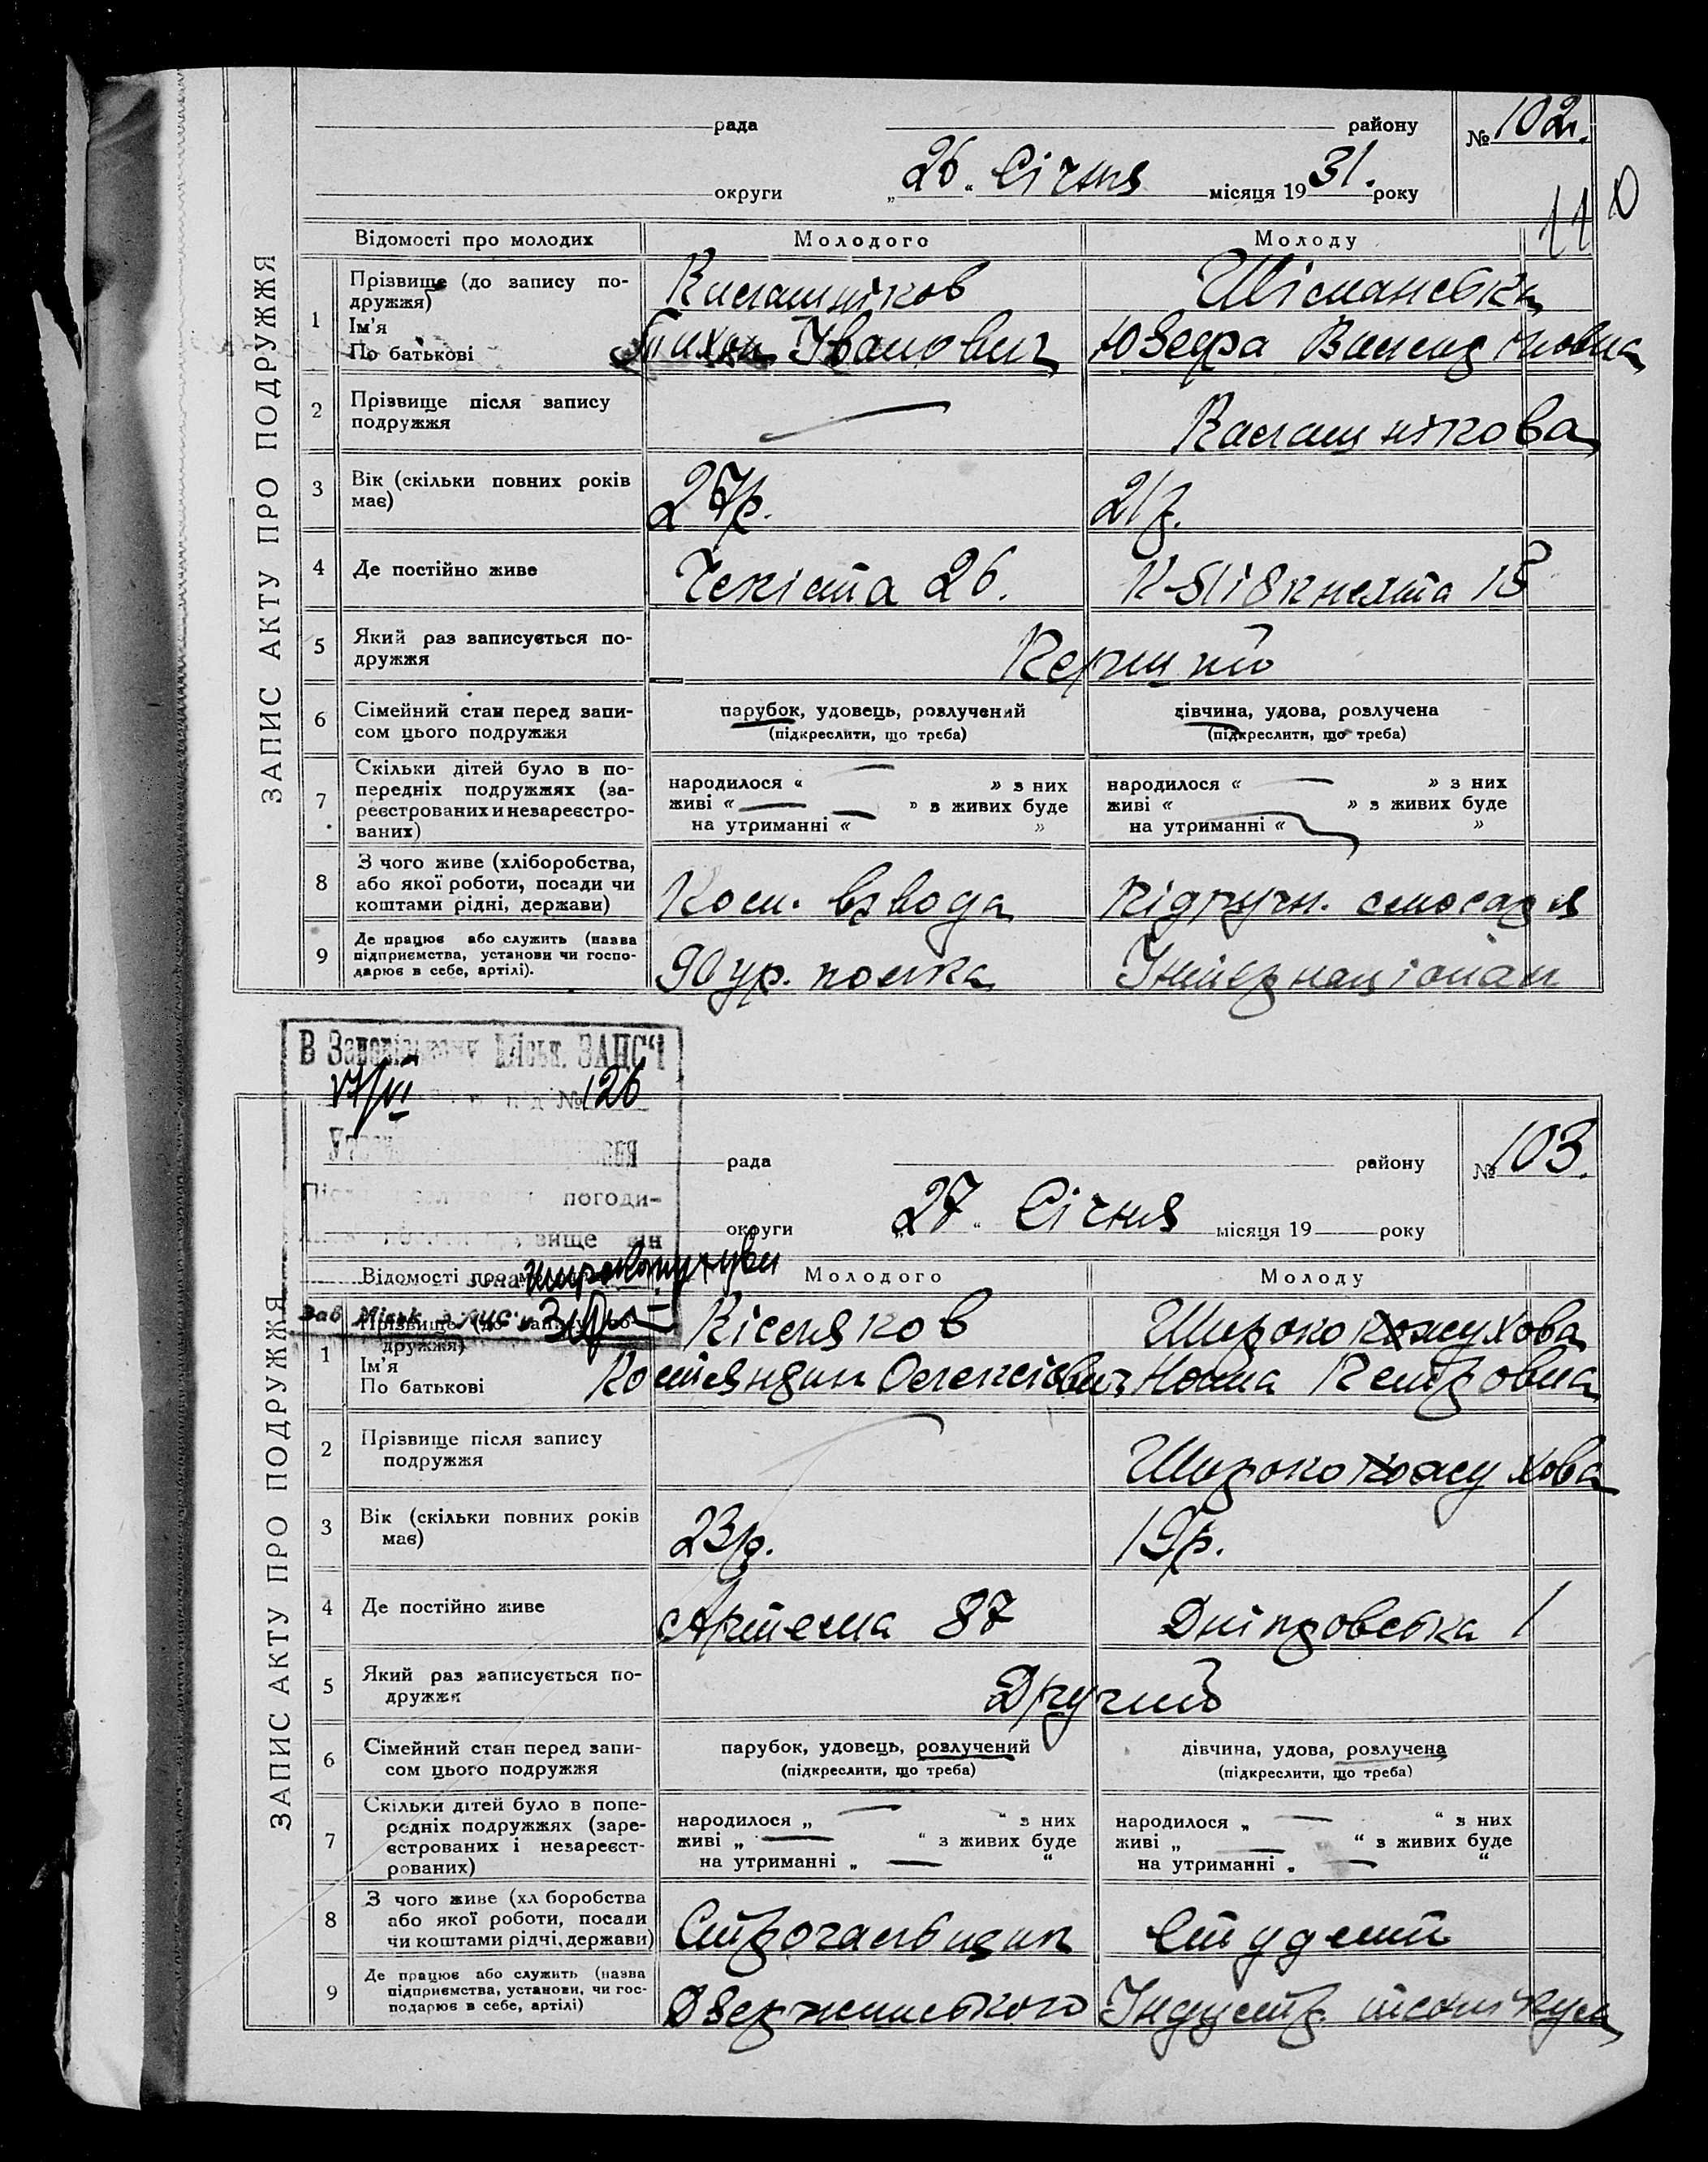 ЗАПИС АКТУ ПРО ПОДРУЖЖЯ
рада району № 102.
округи „26“ Січня місяця 1931. року
11
Відомості про молодих Молодого Молоду
1 Прізвище (до запису по-
дружжя)
Ім'я
По батькові
Калашніков
Тихон Іванович
Шіманська
Юзефа
2 Прізвище після запису
подружжя
Калашнікова
3 Вік (скільки повних років
має)
27р. 21р.
4 Де постійно живе Чекіста 26. К-Лібкнехта 15
5 Який раз записується по-
дружжя
Перший
6 Сімейний стан перед запи-
сом цього подружжя
парубок, удовець, розлучений
(підкреслити, що треба)
дівчина, удова, розлучена
(підкреслити, що треба)
7 Скільки дітей було в по-
передніх подружжях (за-
реєстрованих и незареєстро-
ваних)
народилося « — » з них
живі « — » з живих буде
на утриманні « — »
народилося « — » з них
живі « » з живих буде
на утриманні « — »
8 З чого живе (хліборобства,
або якої роботи, посади чи
коштами рідні, держави)
Ком. взвода Підручн. слюсаря
9 Де працює або служить (назва
підприємства, установи чи госпо-
дарює в себе, артілі).
90 ур. полка Інтернаціонал
В Запорізькому Міськ. ЗАГС'і
17/VI № 126
погоди-
вище він
ЗАПИС АКТУ ПРО ПОДРУЖЖЯ
рада району № 103.
округи „27“ Січня місяця 19 року
Відомості про Молодого Молоду
1 Прізвище (до запису по-
дружжя)
Ім'я
По батькові
Кісляков
Костяндин Олексієвич
Широкожухова
Петровна
2 Прізвище після запису
подружжя
Широкожухова
3 Вік (скільки повних років
має)
23р. 19р.
4 Де постійно живе Артема 87 Дніпровська 1
5 Який раз записується по-
дружжя
Другий
6 Сімейний стан перед запи-
сом цього подружжя
парубок, удовець, розлучений
(підкреслити, що треба)
дівчина, удова, розлучена
(підкреслити, що треба)
7 Скільки дітей було в попе-
редніх подружжях (заре-
єстрованих і незареєст-
рованих)
народилося „ — “ з них
живі „ — “ з живих буде
на утриманні „ — “
народилося „ — “ з них
живі „ — “ з живих буде
на утриманні „ — “
8 З чого живе (хл боробства
або якої роботи, посади
чи коштами рідчі, держави)
Строгальщик Студент
9 Де працює або служить (назва
підприємства, установи, чи гос-
подарює в себе, артілі)
Дзержинського Індустр. технікум